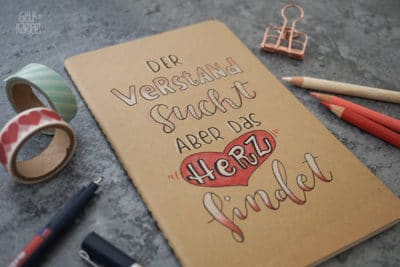 GELB & KARIERT
DER
VERSTAND
sucht
ABER DAS
HERZ
findet